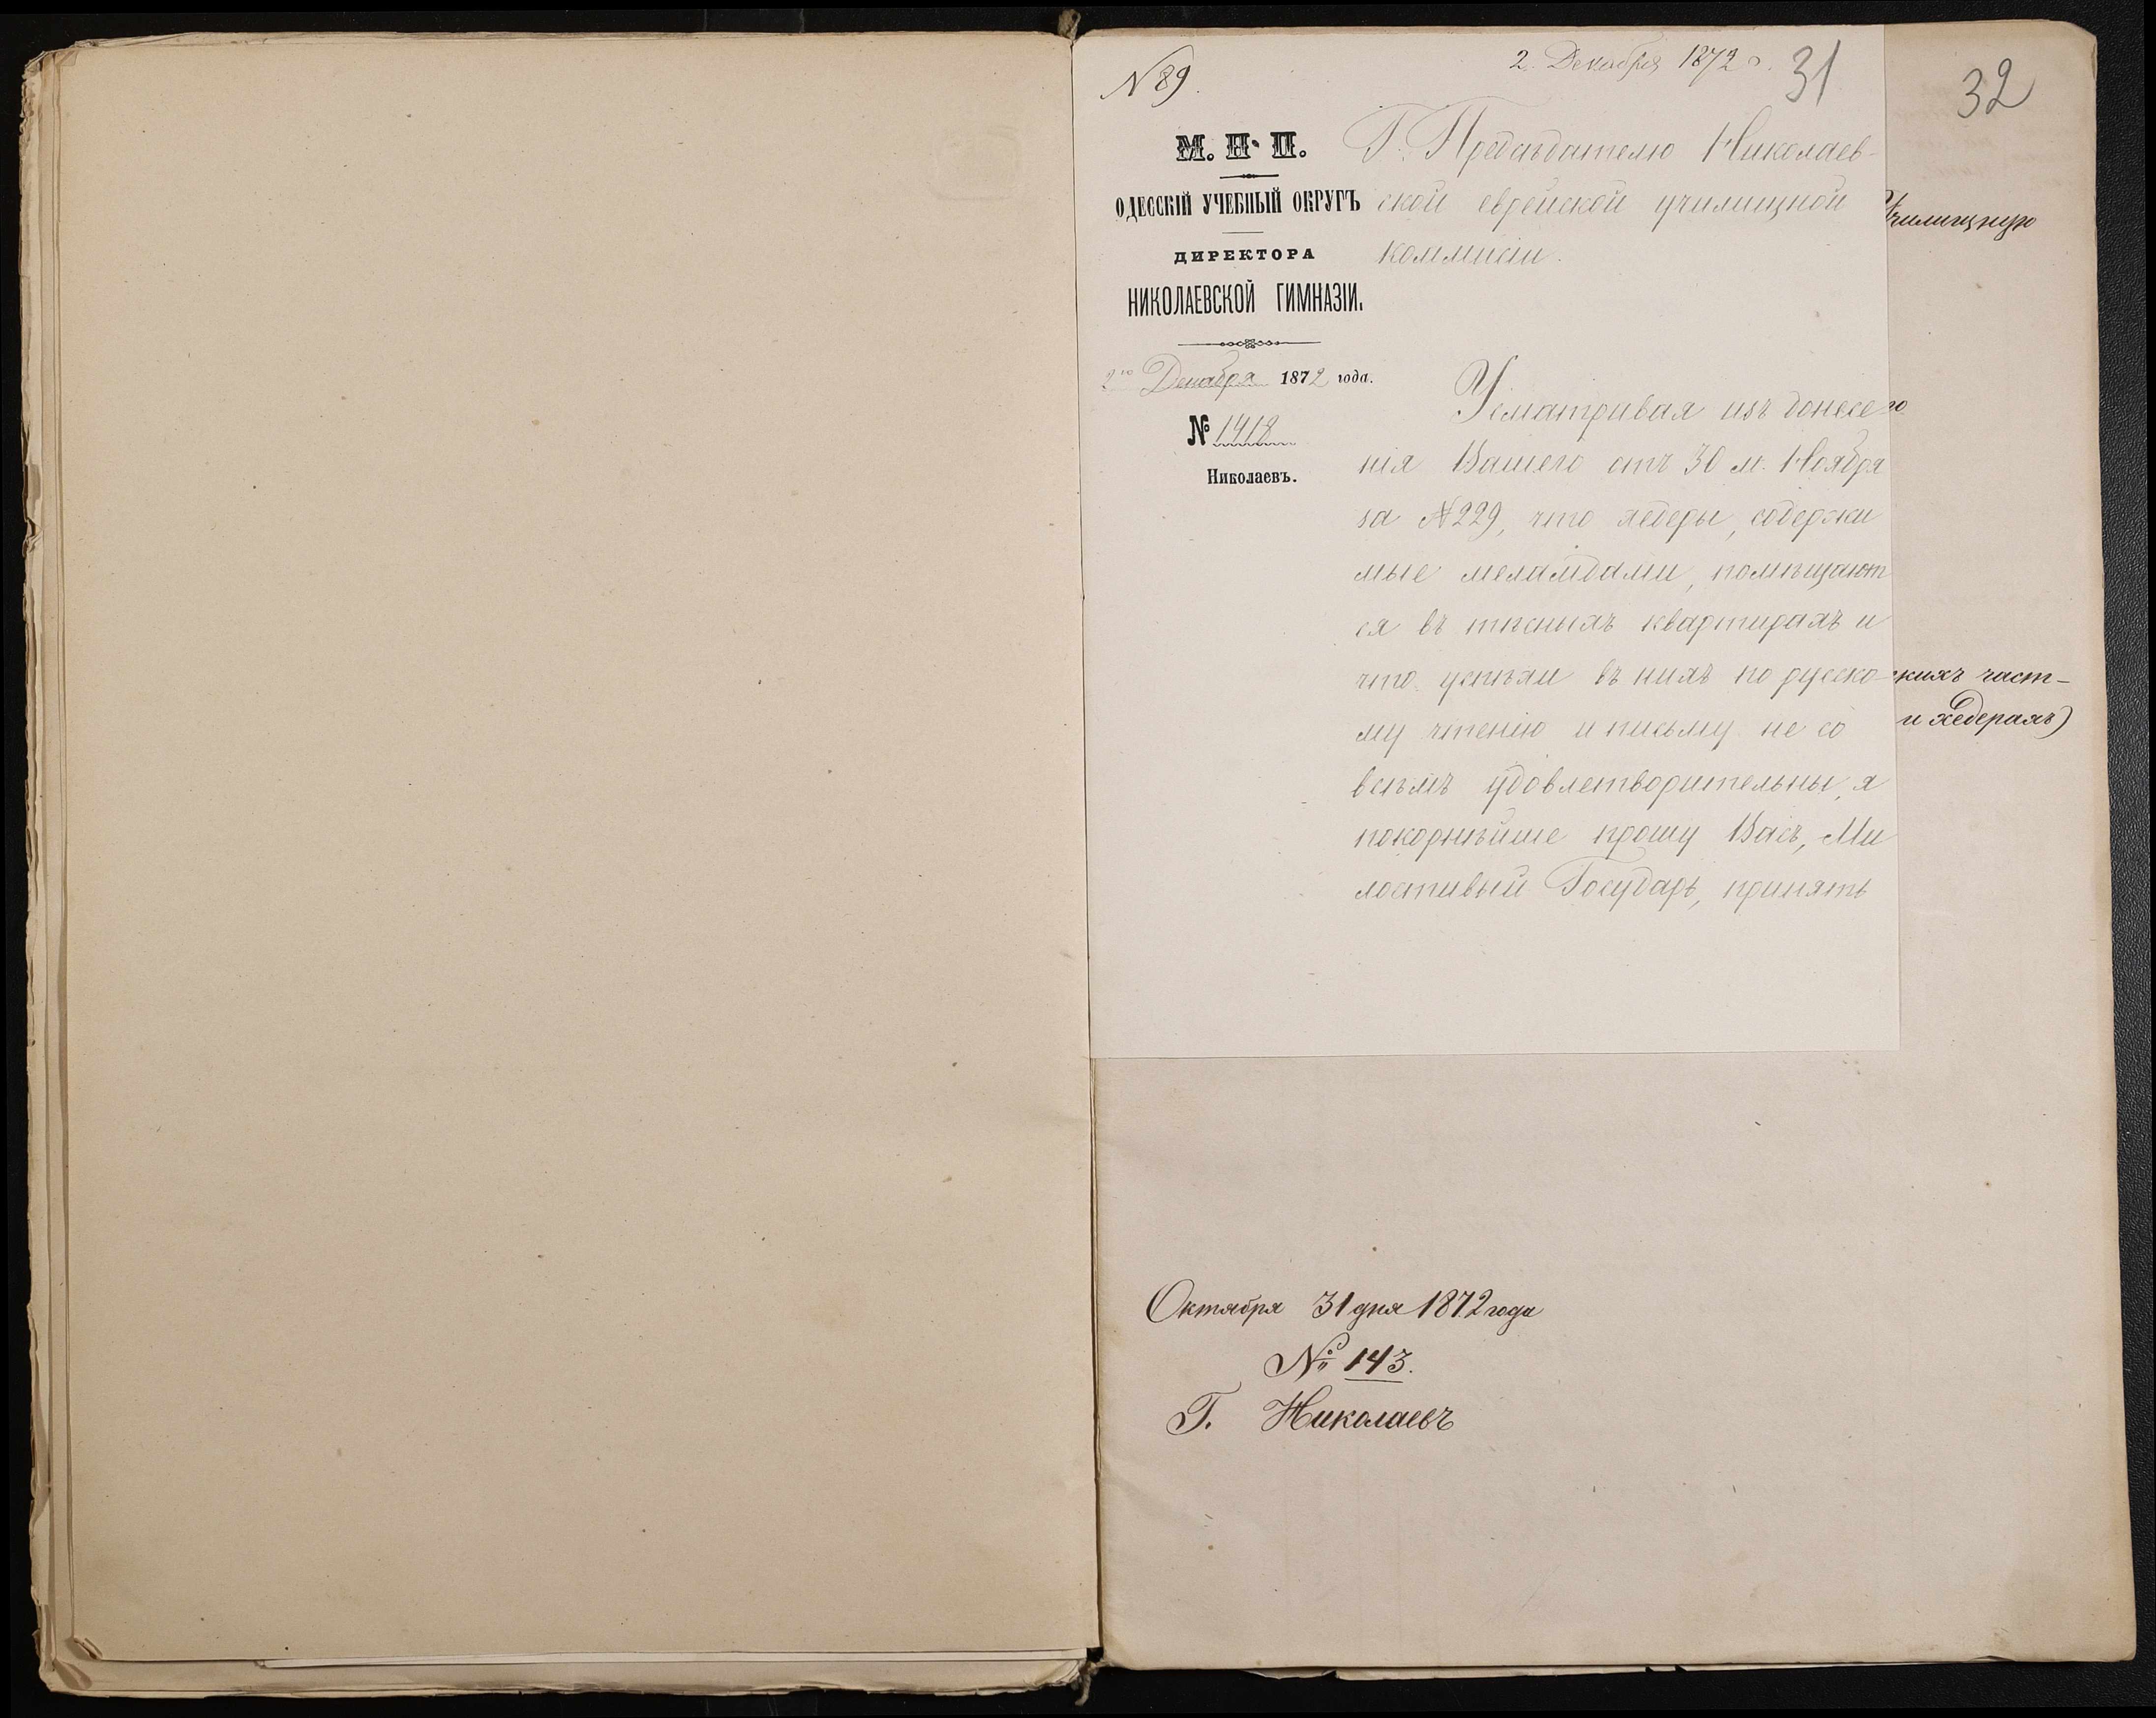 № 89.
2 Декабря 1872 г.
31
32
М. Н. П.
ОДЕССКІЙ УЧЕБНЫЙ ОКРУГЪ
ДИРЕКТОРА
НИКОЛАЕВСКОЙ ГИМНАЗІИ.
2го Декабря 1872 года.
№ 1418
Николаевъ.
Г. Предсѣдателю Николаев-
ской еврейской училищной
коммисіи.
Усматривая изъ донесе
нія Вашего отъ 30 м. Ноября
за № 229, что хедеры, содержи
мые меламдами, помѣщают
ся въ тѣсныхъ квартирахъ и
что успѣхи въ нихъ по русско-
му чтенію и письму не со
всѣмъ удовлетворительны, я
покорнѣйше прошу Васъ, Ми
лостивый Государь, принять
Училищную
го
скихъ част-
и хедерахъ)
Октября 31 дня 1872 года
№ 143.
Г. Николаевъ